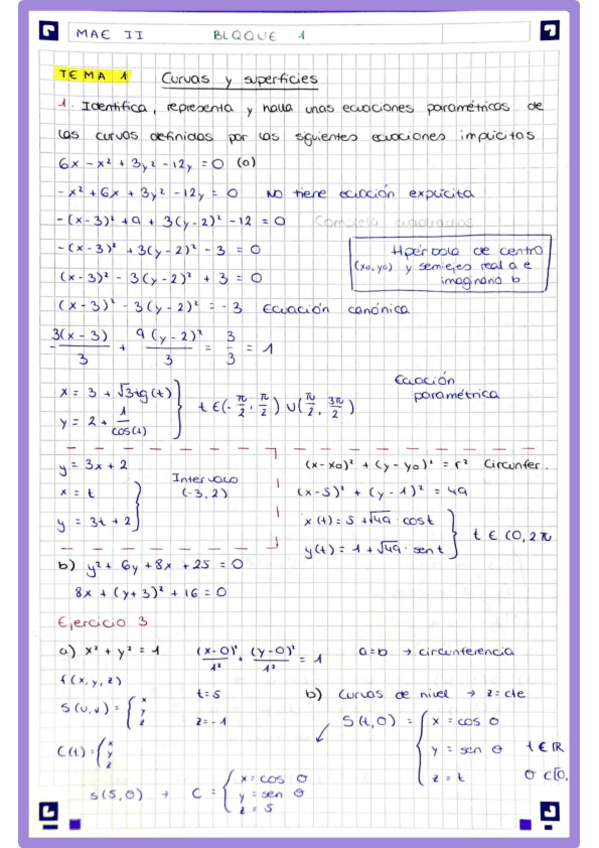 MAE II BLOQUE 1
TEMA 1 Curvas y superficies
1. Identifica, representa y halla unas ecuaciones paramétricas de
las curvas definidas por las siguientes ecuaciones implícitas
6x - x² + 3y² - 12y = 0 (a)
- x² + 6x + 3y² - 12y = 0 NO tiene ecuación explícita
- (x-3)² + 9 + 3(y-2)² - 12 = 0 Completa cuadrados
- (x-3)² + 3(y-2)² - 3 = 0
Hipérbola de centro
(x0,y0) y semiejes real a e
imaginario b
(x-3)² - 3(y-2)² + 3 = 0
(x-3)² - 3(y-2)² = -3 Ecuación canónica
- 3(x-3)/3 + 9(y-2)²/3 = 3/3 = 1
Ecuación
paramétrica
x = 3 + √3 tg(t)
y = 2 + 1/cos(t)
t ∈ (-π/2, π/2) ∪ (π/2, 3π/2)
y = 3x + 2
x = t
y = 3t + 2
Intervalo
(-3, 2)
(x-x0)² + (y-y0)² = r² Circunfer.
(x-5)² + (y-1)² = 49
x(t) = 5 + √49 · cost
y(t) = 1 + √49 · sent
t ∈ (0, 2π
b) y² + 6y + 8x + 25 = 0
8x + (y+3)² + 16 = 0
Ejercicio 3
a) x² + y² = 1 (x-0)²/1² + (y-0)²/1² = 1 a=b → circunferencia
f(x, y, z)
S(u,v) = { x y z
t = 5
z = -1
b) Curvas de nivel → z = cte
S(t,θ) = { x = cos θ
y = sen θ t ∈ ℝ
z = t θ ∈ [0,
C(t) = { x y z
S(5,θ) → C = { x = cos θ
y = sen θ
z = 5